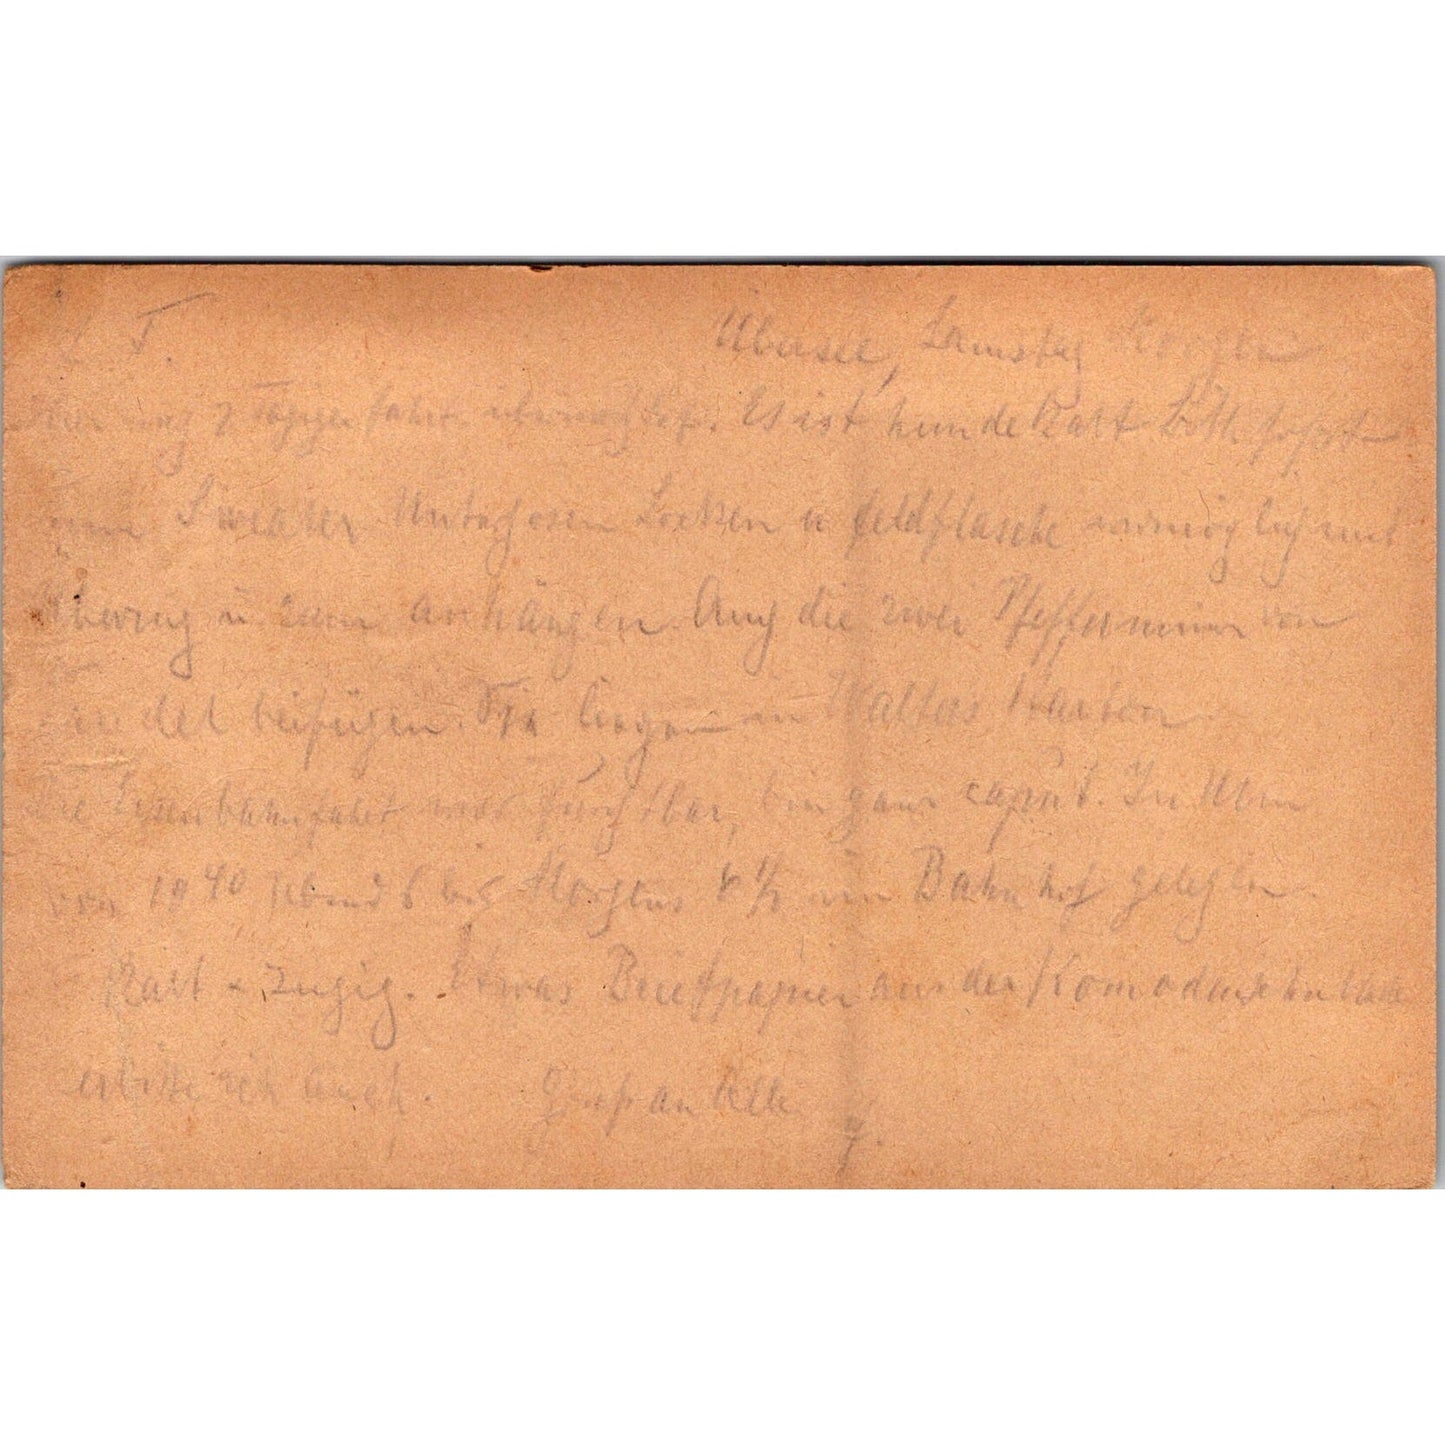 L T. Übersee, Samstag Morgen
7 Tagiger fahrt. Es ist hundekalt. Bitte sofort
Sweater Unterhosen Socken u feldflasche womöglich mit
Überzug u. zum anhängen. Auch die zwei Pfefferminz von
beifügen. Sie liegen in Walters Karton.
Die Eisenbahnfahrt war furchtbar, bin ganz caput. In Ulm
von 10 40 Abends bis Morgens 4 1/2 im Bahnhof gelegen.
Kalt u zugig. Etwas Briefpapier aus der Komodenschublade
erbitte ich auch. Gruß an Alle